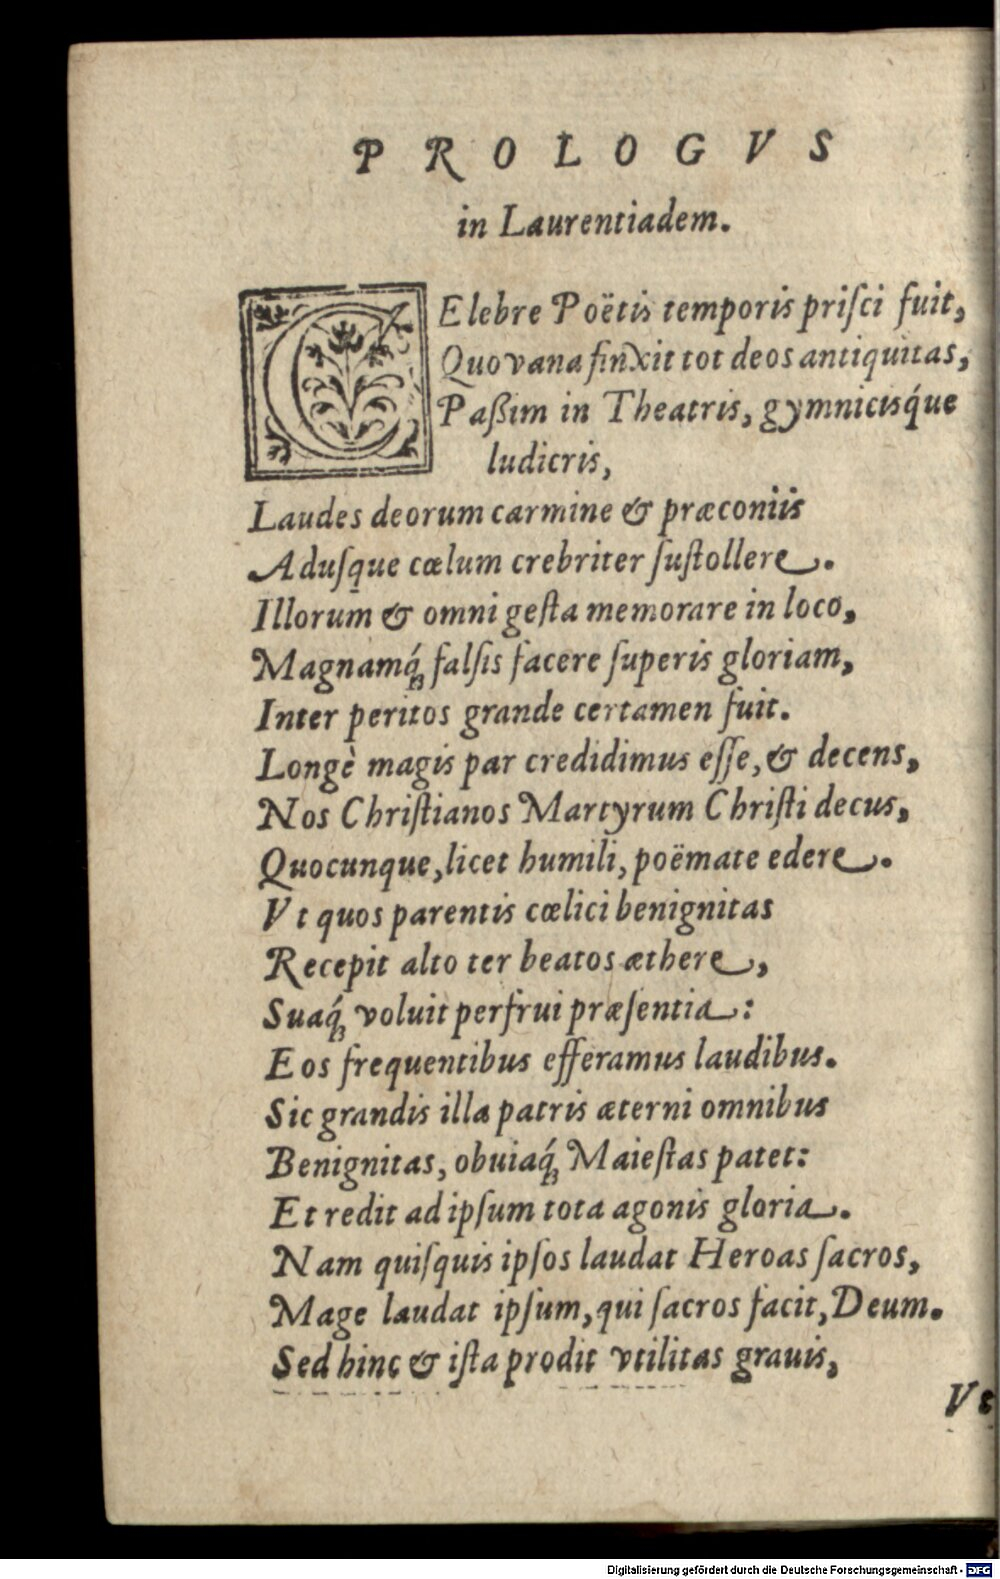 PROLOGVS
in Laurentiadem.
CElebre Poëtis temporis priſci fuit,
Quo vana finxit tot deos antiquitas,
Paßim in Theatris, gymnicisq́ue
ludicris,
Laudes deorum carmine & præconiis
Aduſque cœlum crebriter ſuſtollere.
Illorum & omni geſta memorare in loco,
Magnamq́ꝫ falſis facere ſuperis gloriam,
Inter peritos grande certamen fuit.
Longè magis par credidimus eſſe, & decens,
Nos Chriſtianos Martyrum Chriſti decus,
Quocunque, licet humili, poëmate edere.
Vt quos parentis cœlici benignitas
Recepit alto ter beatos æthere,
Suaq́ꝫ voluit perfrui præſentia:
Eos frequentibus efferamus laudibus.
Sic grandis illa patris æterni omnibus
Benignitas, obuiaq́ꝫ Maieſtas patet:
Et redit ad ipſum tota agonis gloria.
Nam quiſquis ipſos laudat Heroas ſacros,
Mage laudat ipſum, qui ſacros facit, Deum.
Sed hinc & iſta prodit vtilitas grauis,
Vt
Digitalisierung gefördert durch die Deutsche Forschungsgemeinschaft - DFG